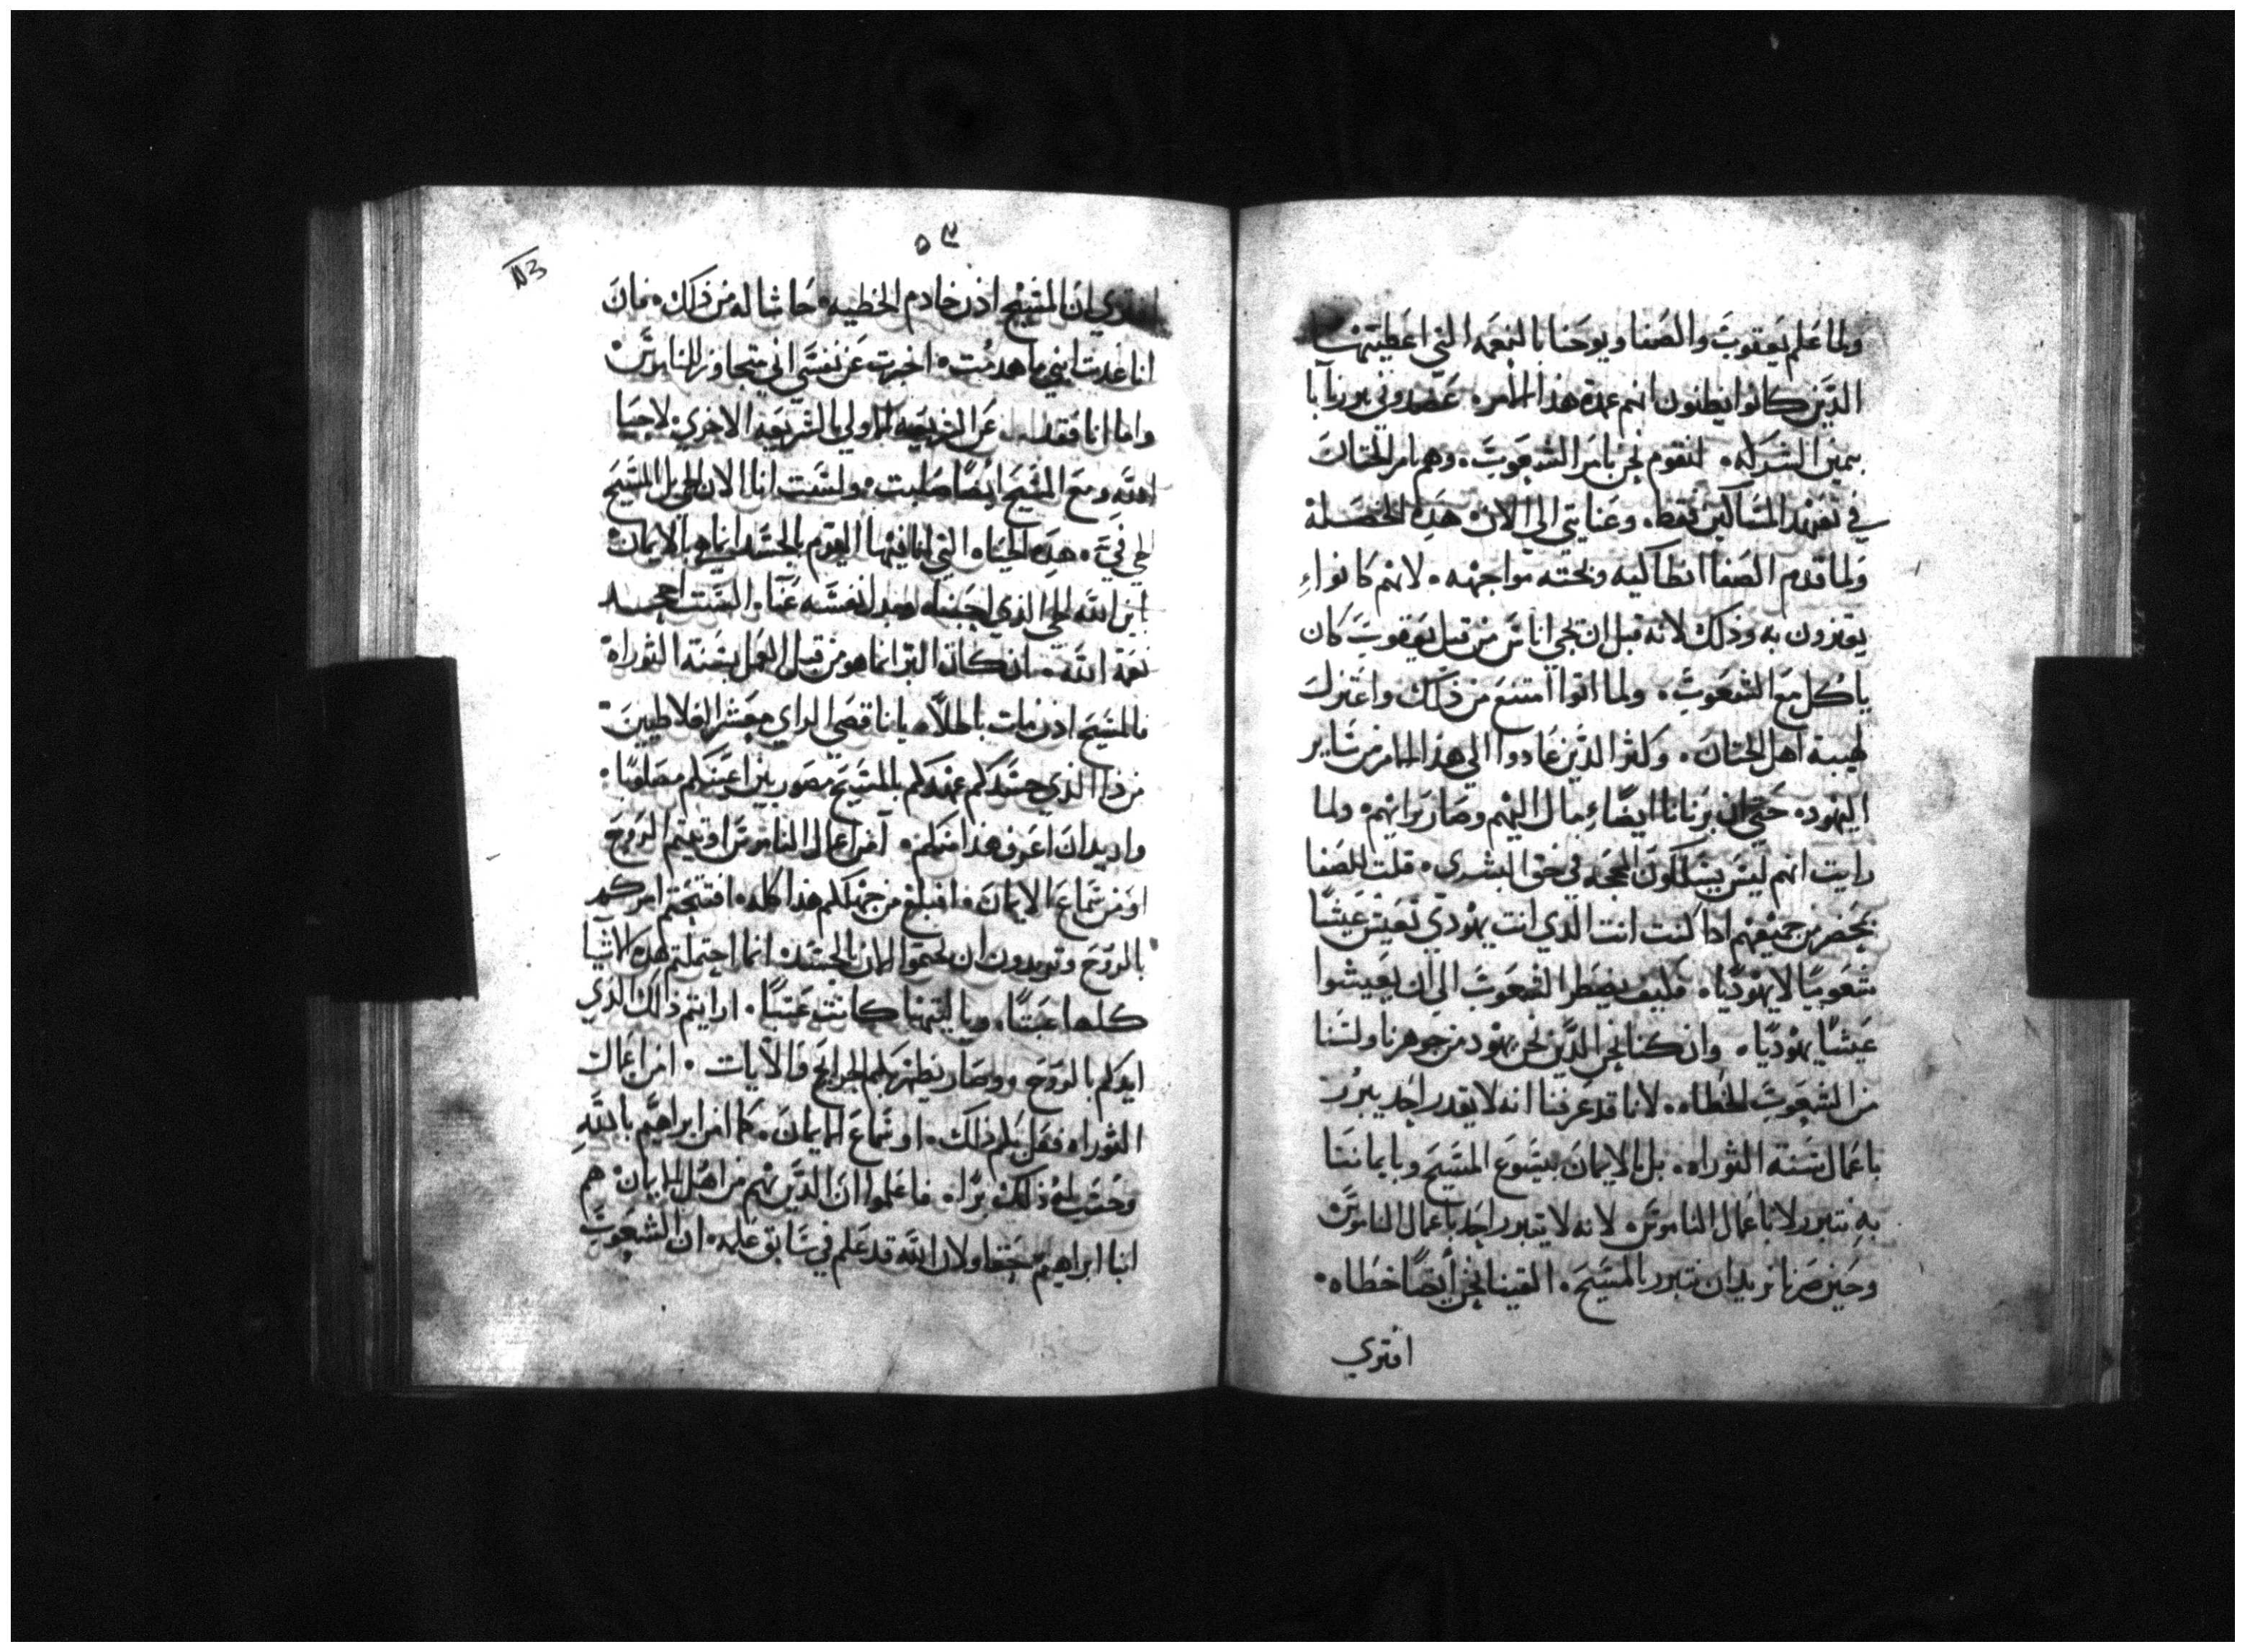 ولما علم يعقوب والصفا ويوحنا بالنعمه التي اعطيتها
الدين كانوا يظنون انهم عمدة هذا الامر، عضدوني وبرنابا
بيمين الشركه، لنقوم نحن بامر الشعوب، وهم بامر الختان
في تعهد المساكين فقط، وعنايتي الي الان هذه الخصلة
ولما قدم الصفا انطاكيه وبخته مواجهه، لانهم كانوا
يعترون به وذلك لانه قبل ان يجي اناس من قبل يعقوب كان
ياكل مع الشعوب، ولما اتوا امتنع من ذلك واعتزل
لهيبة اهل الختان، وكثر الدين عادوا الي هذا الامر من ساير
اليهود، حتي ان برنابا ايضا مال اليهم وصار برايهم، ولما
رايت انهم ليس يسلكون المحجه في حق البشري، قلت للصفا
بحضر من جميعهم ادا كنت انت الدي انت يهودي تعيش عيشا
شعوبيا لا يهوديا، فكيف يضطر الشعوب الي ان يعيشوا
عيشا يهوديا، وان كنا نحن الدين نحن يهود من جوهرنا ولسنا
من الشعوب الخطاه، لانا قد عرفنا انه لا يقدر احد يبرر
باعمال سنة التوراه، بل بالايمان بيسوع المسيح وبايماننا
به نتبرر لا باعمال الناموس، لانه لا يتبرر احد باعمال الناموس
وحين صرنا نريد ان نتبرر بالمسيح، القينا نحن ايضا خطاه،
افتري
٥٣
113
افتري ان المسيح اذن خادم الخطيه، حاشا له من ذلك، فان
انا عدت ابني ما هدمت، اخبرت عن نفسي اني متجاوز للناموس
واما انا فقد عن الشريعه الاولي بالشريعه الاخري، لاحيا
لله ومع المسيح ايضا صلبت، ولست انا الان الحي بل المسيح
حي في، هذه الحياه التي انا فيها اليوم بالجسد انما هي بالايمان
بابن الله الحي الذي احبنا وبدل نفسه عنا، ولست اجحد
نعمة الله، ان كان البر انما هو من قبل العمل بسنة التوراة
فالمسيح اذن مات باطلا، يا ناقصي الراي معشر الغلاطيين
من ذا الذي حسدكم عهدكم بالمسيح مصور بين اعينكم مصلوبا،
واريد ان اعرف هذا منكم، امن اعمال الناموس اوتيتم الروح
او من سماع الايمان، افبلغ من جهلكم هذا كله، افتتحتم امركم
بالروح وتريدون ان تختموا الان بالجسد، انما احتملتم هذه الاشيا
كلها عبثا، ويا ليتها كانت عبثا، ارايتم ذالك الذي
ايدكم بالروح وصار يظهر بكم الجرايح والايات، امن اعمال
التوراه فعل بكم ذلك، او سماع الايمان، كما امن ابراهيم بالله
وحسب له ذلك برا، فاعلموا ان الدين هم من اهل الايمان هم
ابنا ابراهيم حقا ولان الله قد علم في سابق علمه، ان الشعوب